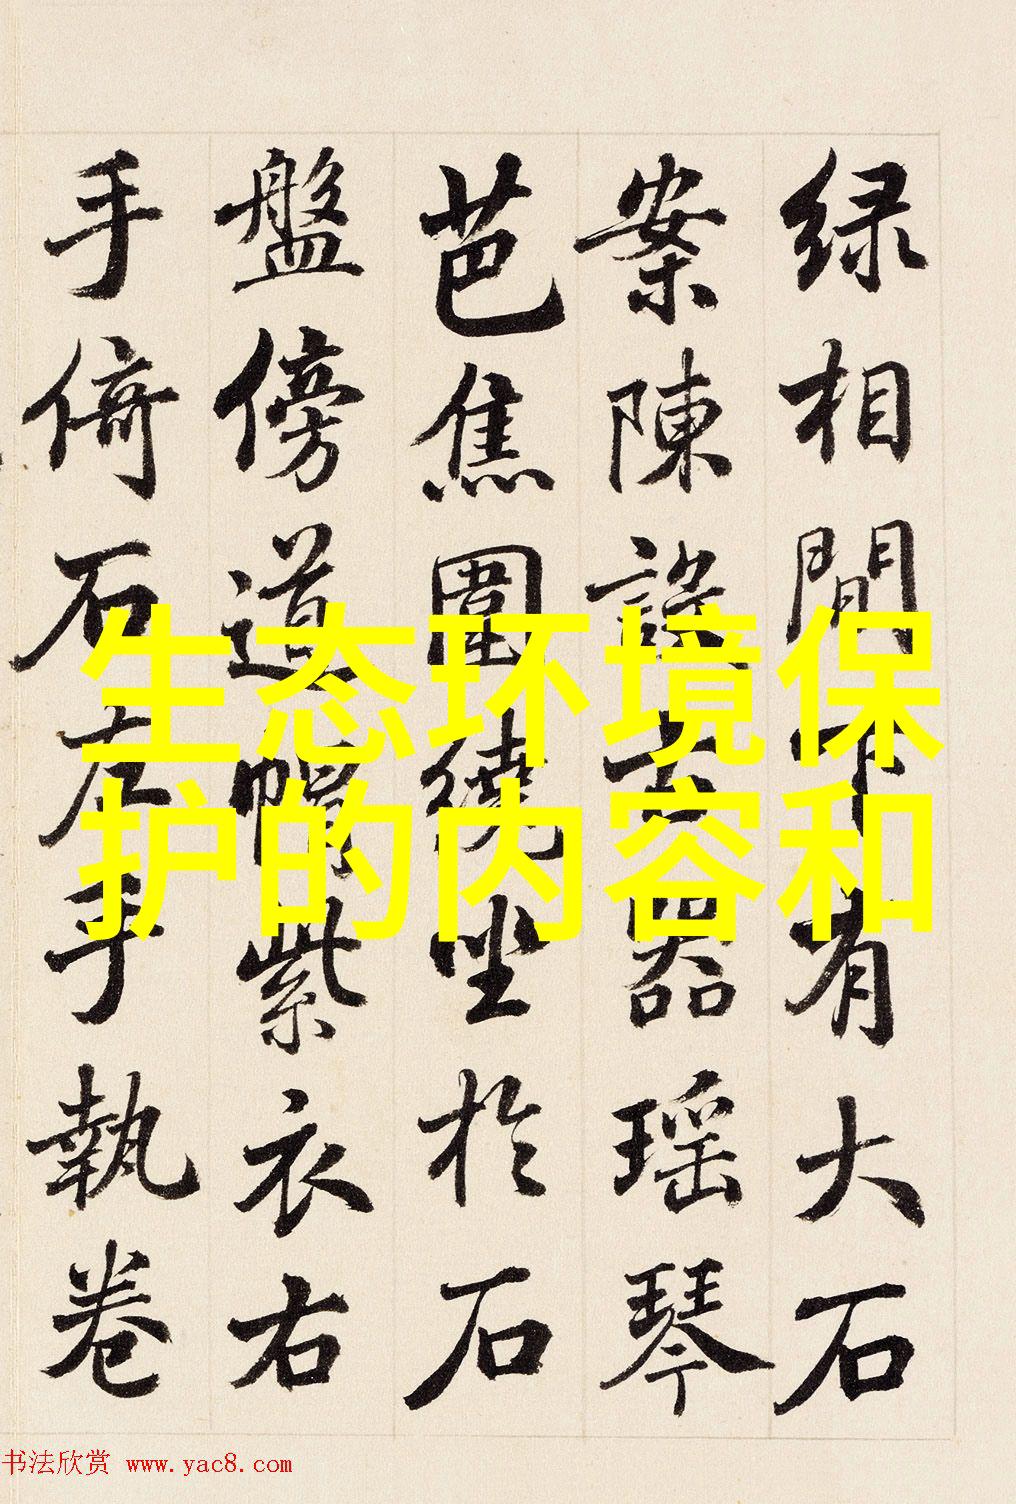 绿相間下有大石
案陳設古器瑶琴
芭焦圍繞坐於石
盤傍道帽紫衣右
手倚石左手執卷
生态环境保
护的内容和
书法欣赏 www.yac8.com